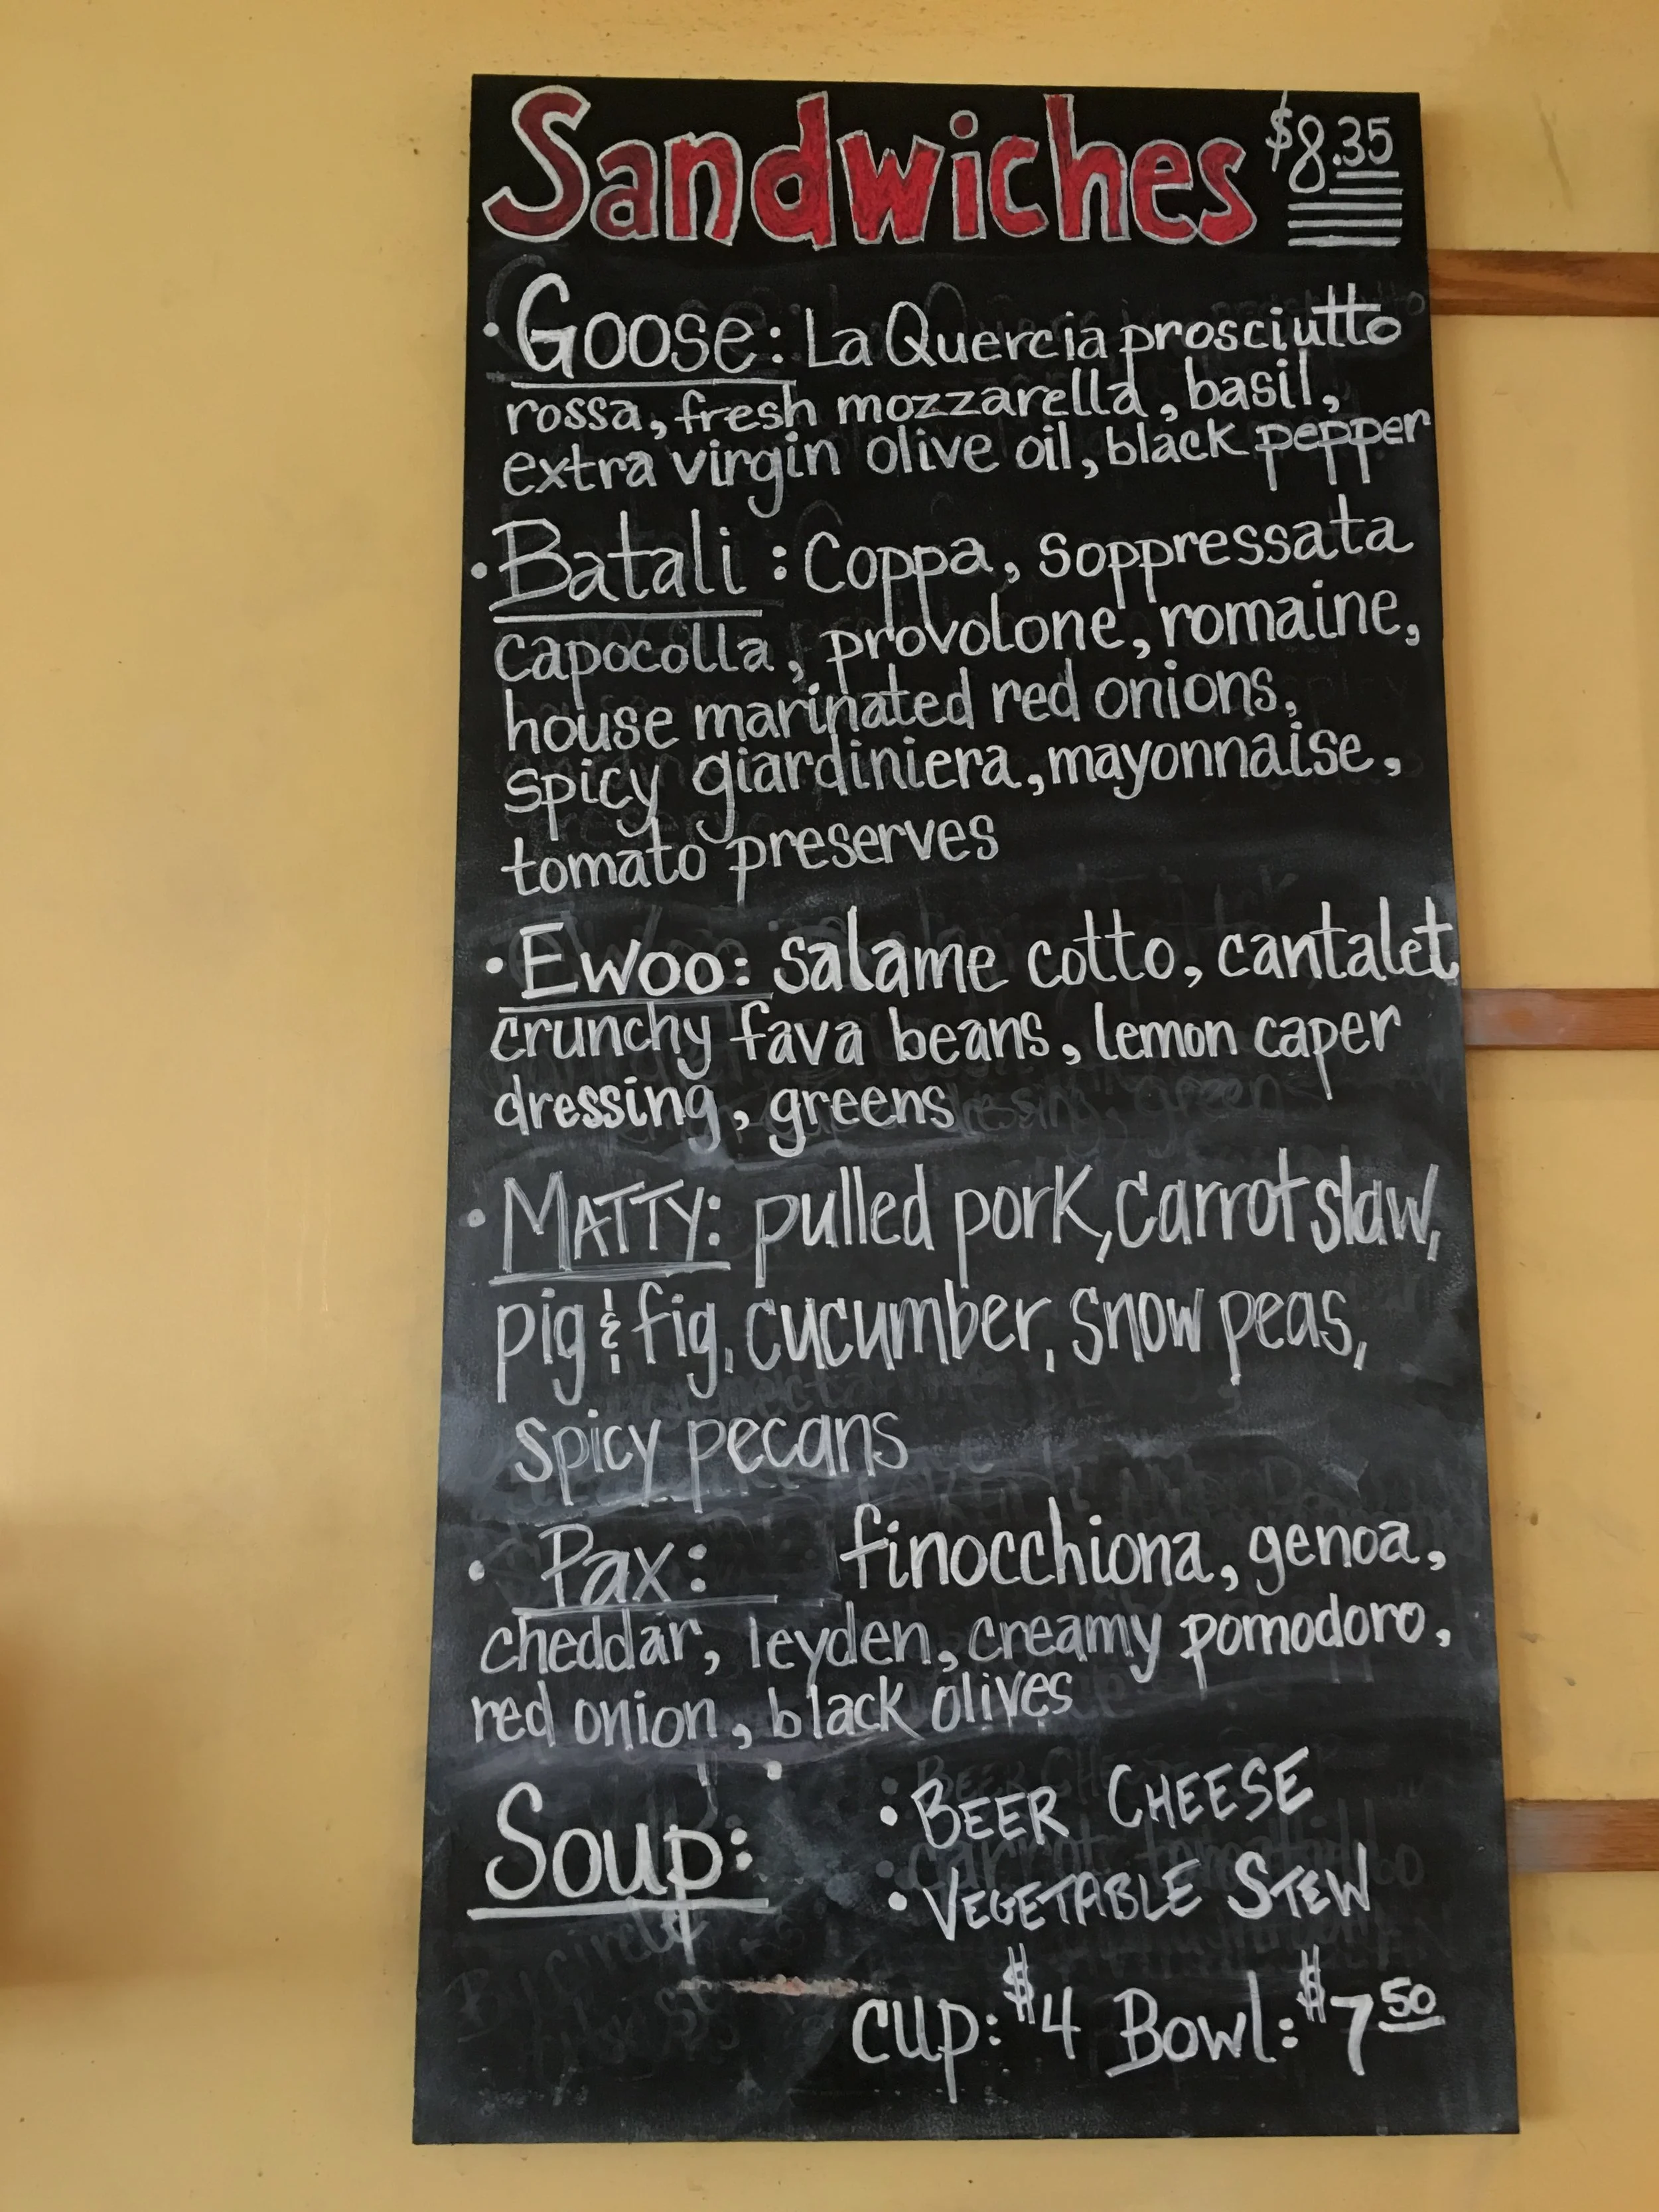 Sandwiches $8.35
• Goose: La Quercia prosciutto
rossa, fresh mozzarella, basil,
extra virgin olive oil, black pepper
• Batali: Coppa, soppressata
capocolla, provolone, romaine,
house marinated red onions,
spicy giardiniera, mayonnaise,
tomato preserves
• Ewoo: salame cotto, cantalet
crunchy fava beans, lemon caper
dressing, greens
• MATTY: pulled pork, carrot slaw,
pig & fig, cucumber, snow peas,
spicy pecans
• Pax: finocchiona, genoa,
cheddar, leyden, creamy pomodoro,
red onion, black olives
Soup: • BEER CHEESE
• VEGETABLE STEW
cup: $4 Bowl: $7 50